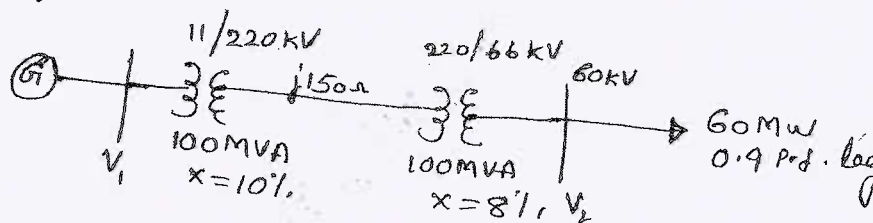 11/220kV
220/66kV
G
j150Ω
60kV
60MW
0.9 P.f. lag
V1
100MVA
X=10%.
100MVA
X=8%, V2